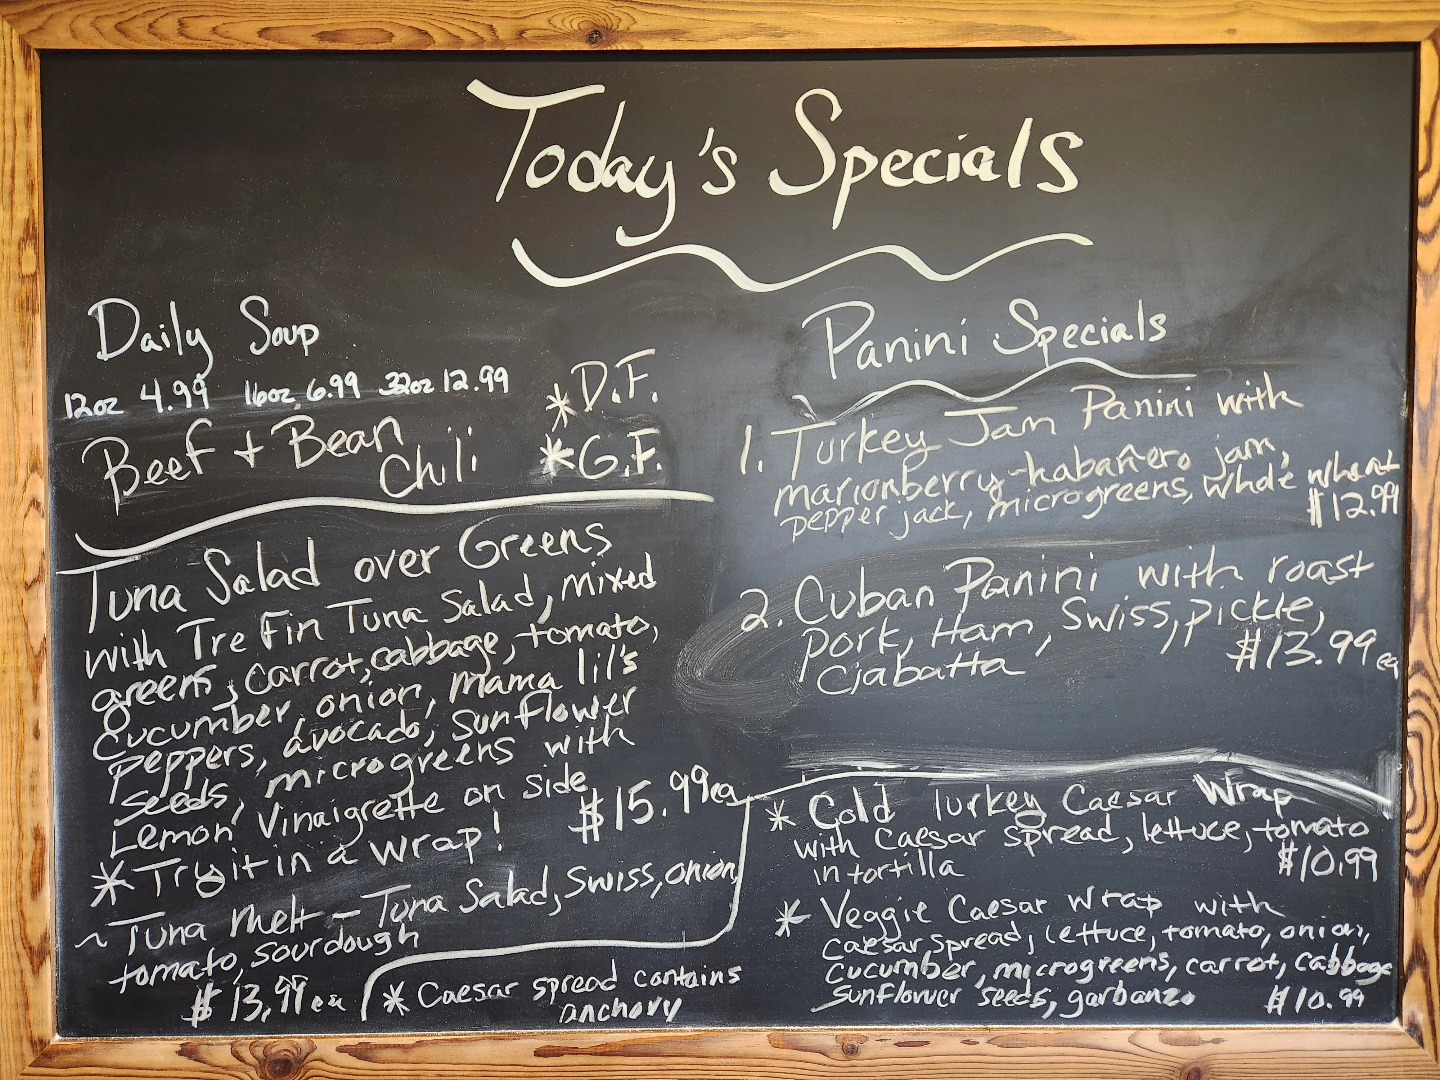 Today's Specials
Daily Soup
12oz 4.99 16oz 6.99 32oz 12.99
Beef + Bean
Chili
*D.F.
*G.F.
Tuna Salad over Greens
with Tre Fin Tuna Salad, mixed
greens, carrot, cabbage, tomato,
cucumber, onion, mama lil's
peppers, avocado, sunflower
seeds, microgreens with
Lemon Vinaigrette on side
$15.99ea
* Try it in a wrap!
~ Tuna Melt - Tuna Salad, Swiss, onion,
tomato, sourdough
$13.99ea
* Caesar spread contains
anchovy
Panini Specials
1. Turkey Jam Panini with
marionberry-habañero jam,
pepper jack, microgreens, whole wheat
$12.99
2. Cuban Panini with roast
pork, Ham, Swiss, pickle,
Ciabatta
$13.99ea
* Cold Turkey Caesar Wrap
with Caesar spread, lettuce, tomato
in tortilla
$10.99
* Veggie Caesar Wrap with
caesar spread, lettuce, tomato, onion,
cucumber, microgreens, carrot, cabbage
sunflower seeds, garbanzo $10.99